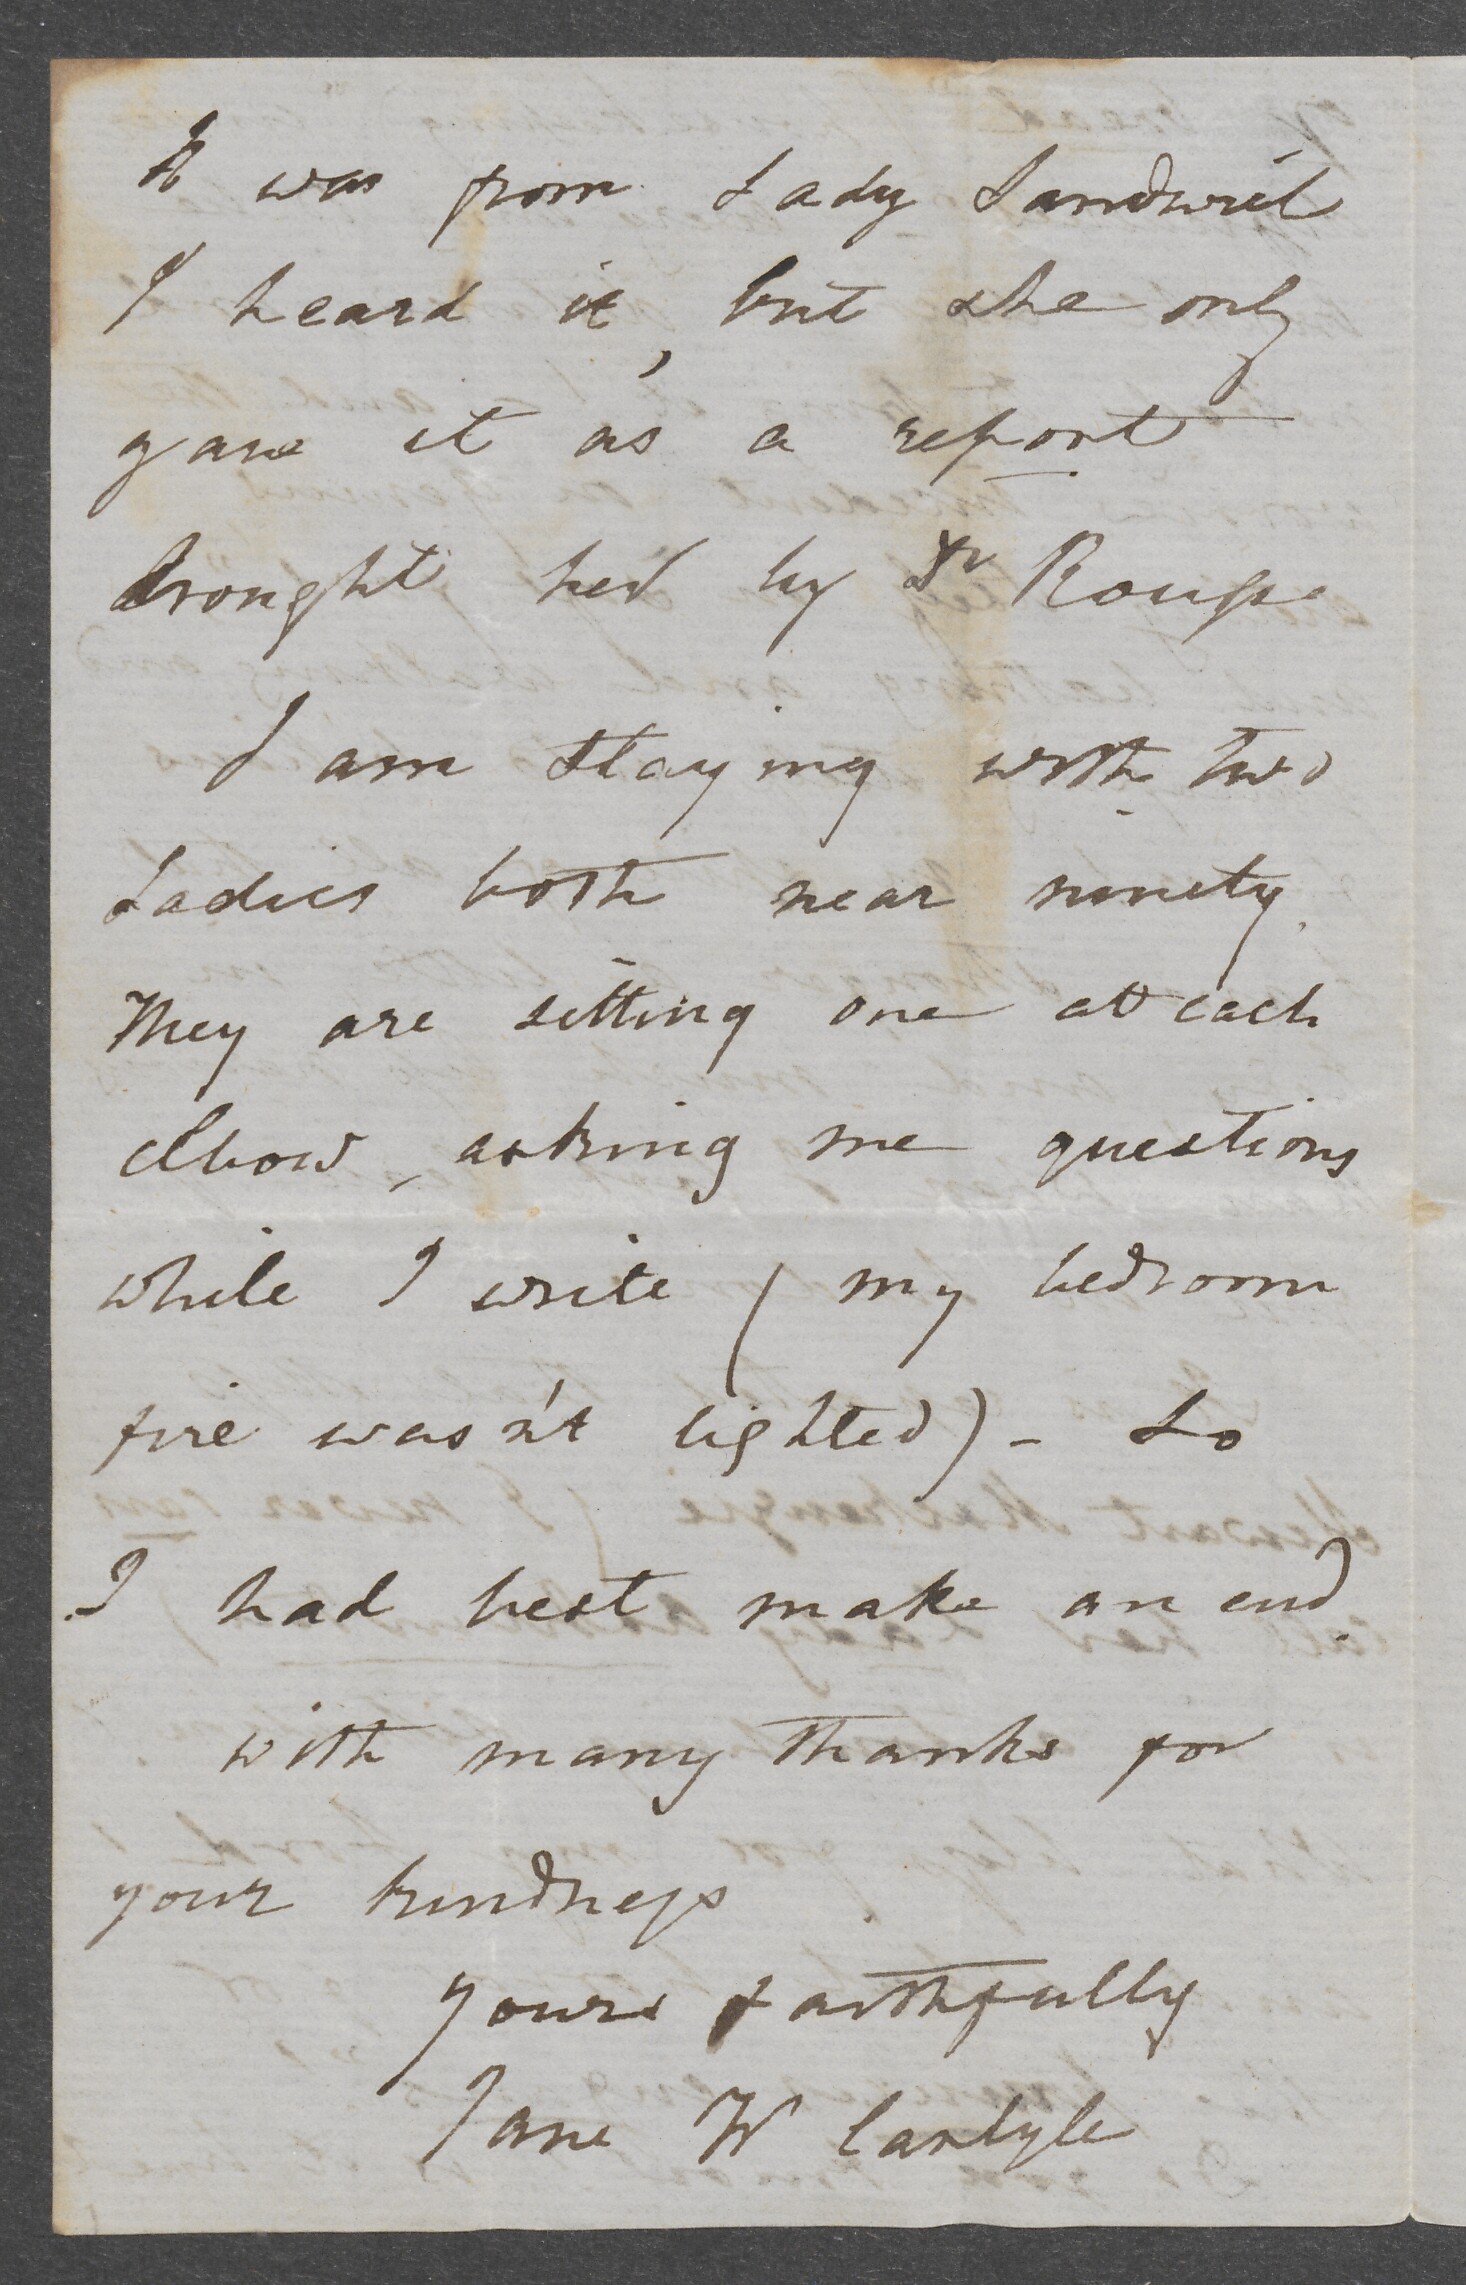 It was from Lady Sandwich
I heard it, but she only
gave it as a report
brought her by Dr Roups
I am staying with two
Ladies both near ninety.
They are sitting one at each
elbow, asking me questions
while I write (my bedroom
fire wasn't lighted) - So
I had best make an end.
with many thanks for
your kindness
Yours faithfully
Jane W Carlyle